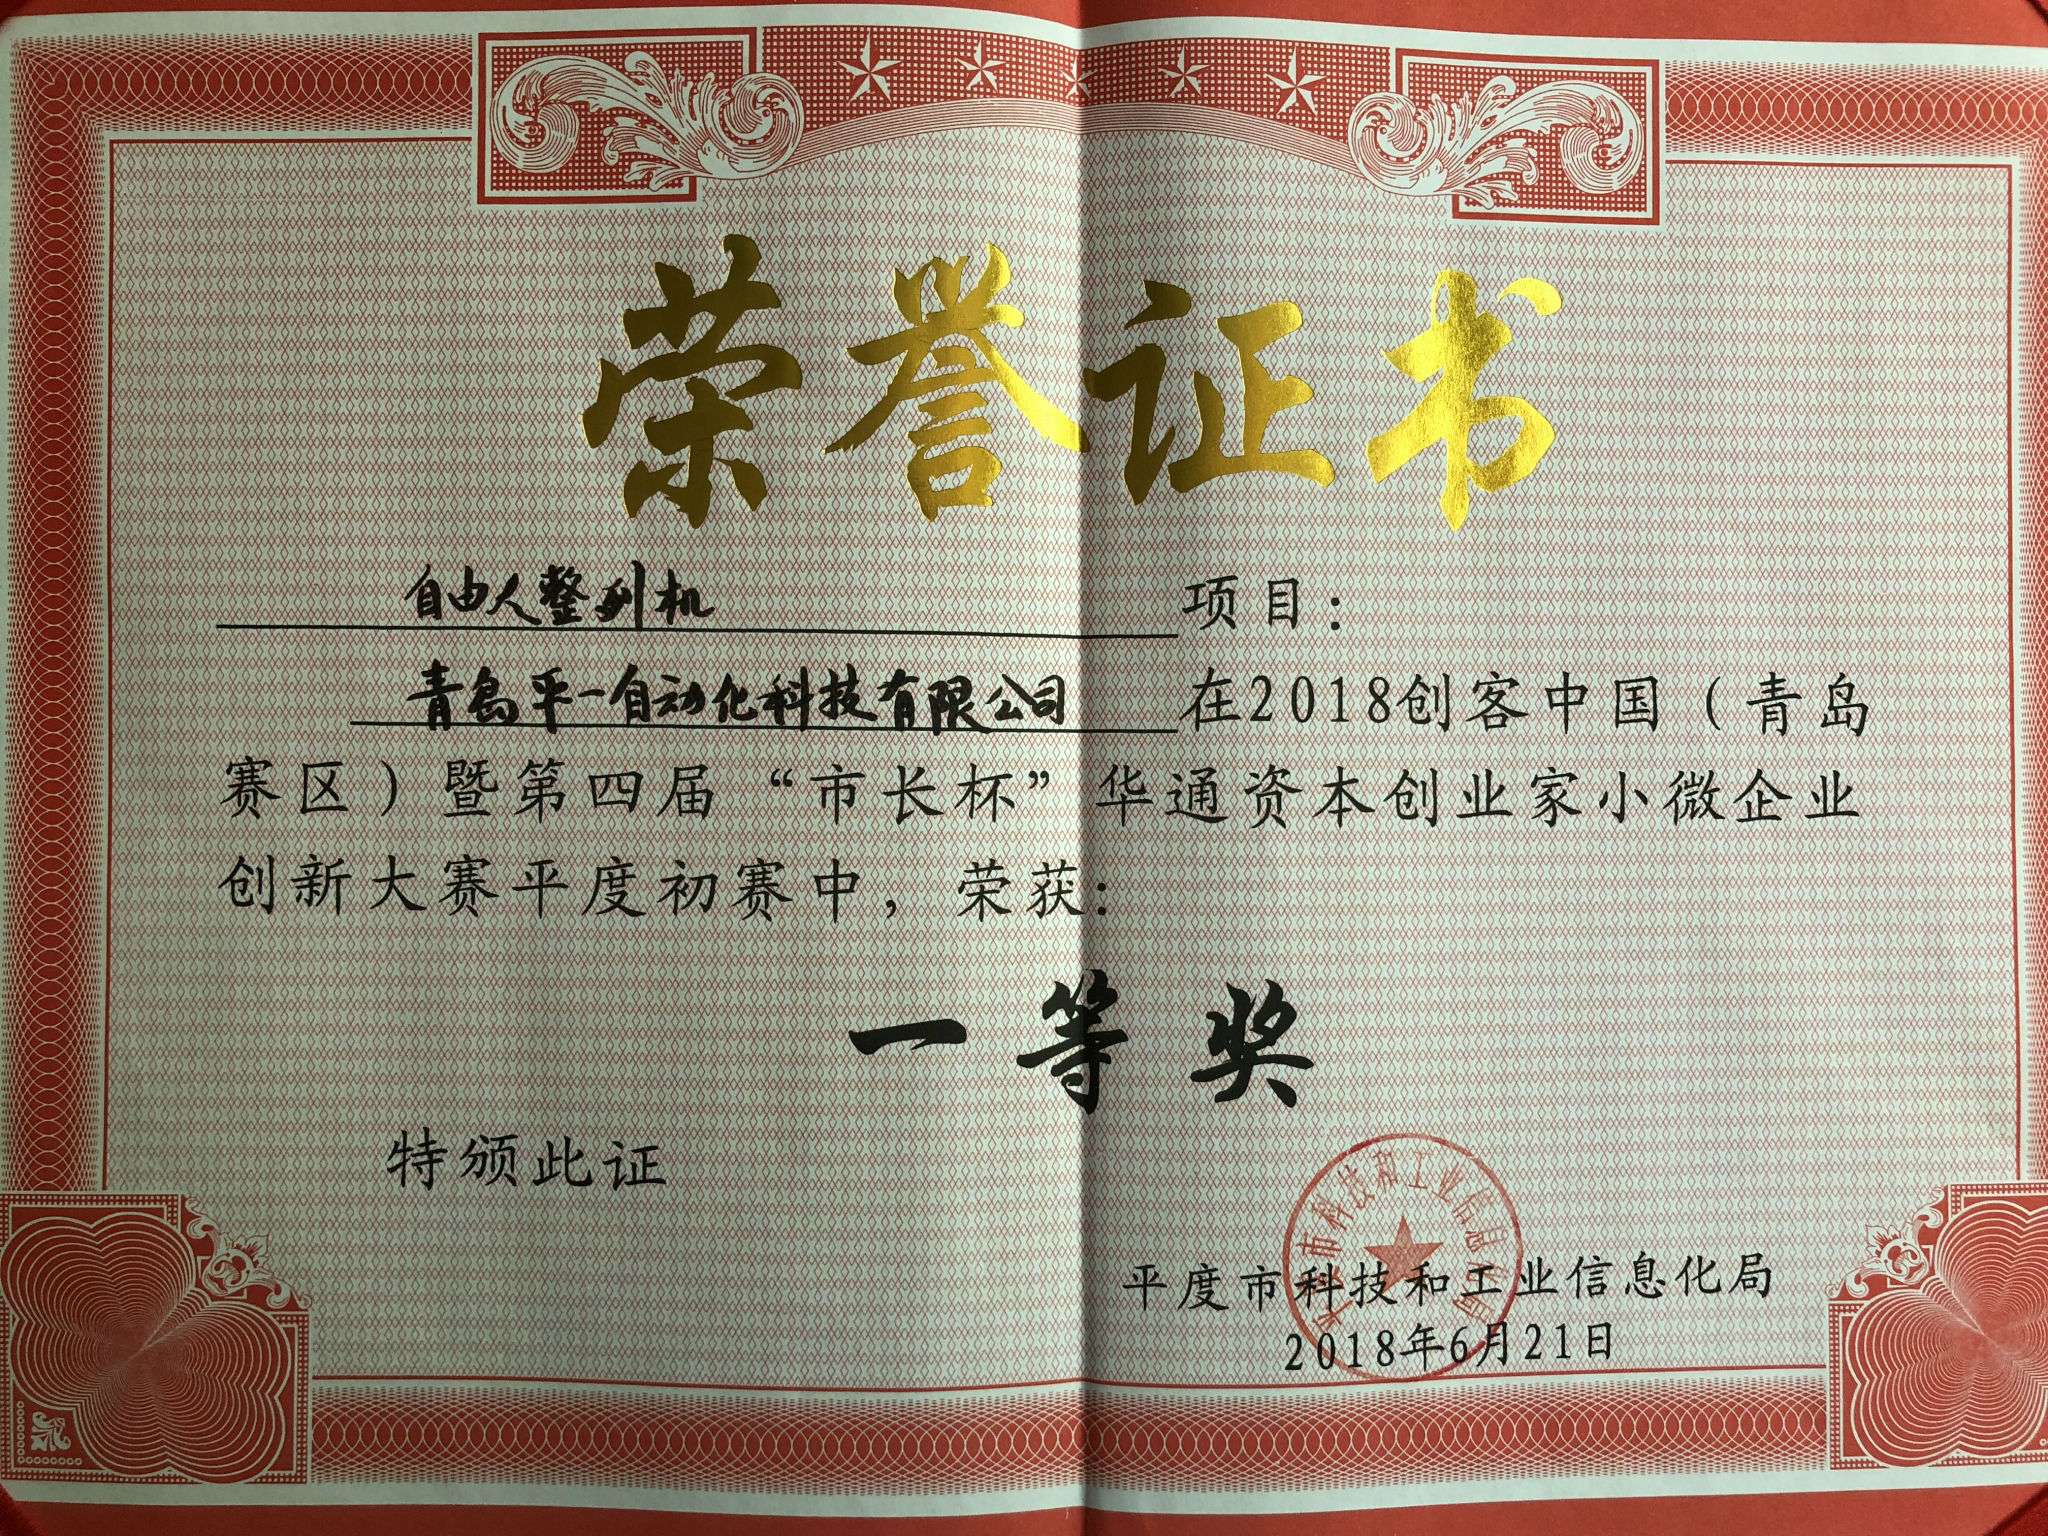 荣誉证书
自由人整列机 项目：
青岛平一自动化科技有限公司 在2018创客中国（青岛
赛区）暨第四届“市长杯”华通资本创业家小微企业
创新大赛平度初赛中，荣获：
一等奖
特颁此证
平度市科技和工业信息化局
平度市科技和工业信息化局
2018年6月21日